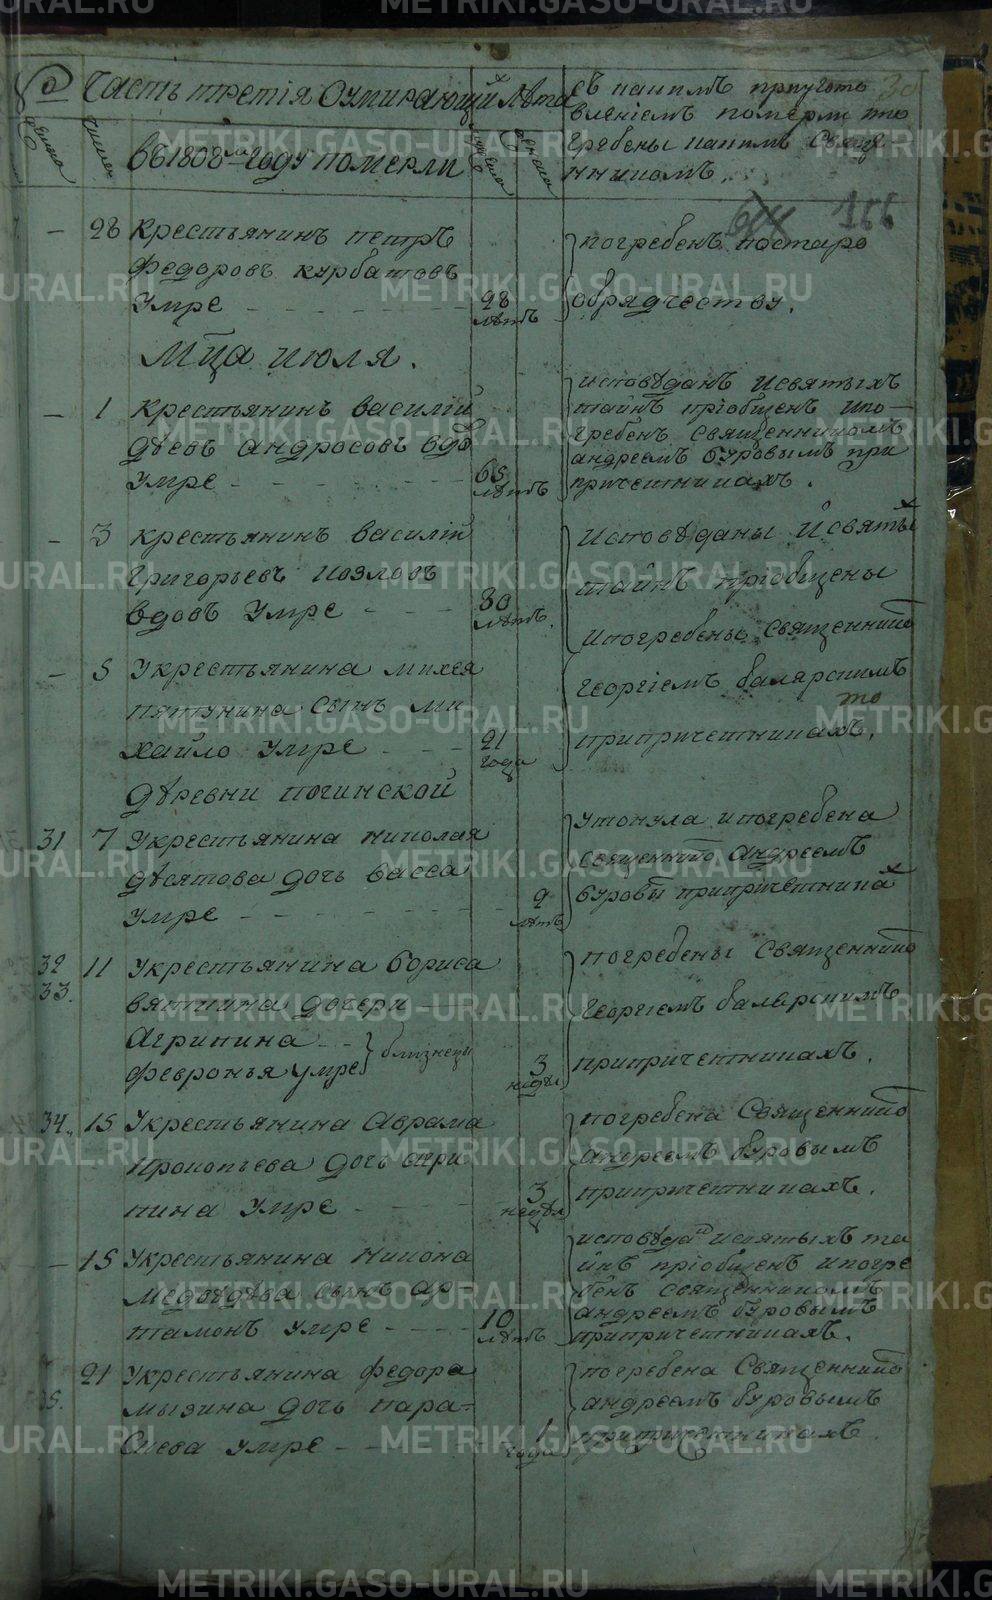 Часть третія Оумирающихъ
Лѣта
съ какимъ пріугото
вленіемъ померли и по
гребены какимъ Свяще
нникомъ.
30
числа
въ 1808 году померли
614 166
28 Крестьянинъ петръ
федоровъ курбатовъ
Умре
28
лѣтъ
погребенъ постаро
обрядчеству.
Мца июля.
1 Крестьянинъ василій
андросовъ вдовъ
Умре
65
лѣтъ
исповѣданъ исвятыхъ
тайнъ пріобщенъ ипо
гребенъ священникомъ
андреемъ буровымъ при
причетникахъ.
3 крестьянинъ василій
григорьевъ козловъ
вдовъ Умре
30
лѣтъ.
5 Укрестьянина михея
пятунина сынъ ми
хайло Умре
21
года
исповѣданы исвяты
тайнъ пріобщены
ипогребены священнико
георгіемъ балярскимъ
припричетникахъ.
Деревни починской
31 7 Укрестьянина николая
дѣсятова дочь васса
Умре
9
лѣтъ
утонула ипогребена
священнико андреемъ
буровы припричетника
32 33. 11 Укрестьянина бориса
вяткина дочери
Агрипина
февронья умре близнецы
3
недѣл
погребены Священнико
георгіемъ балярскимъ
припричетникахъ.
34. 15 Укрестьянина Аврама
прокопьева дочь агри
пина Умре
3
недѣл
погребена Священнико
андреемъ буровымъ
припричетникахъ.
15 Укрестьянина никона
медвѣдева сынъ ар
тамонъ умре
10
лѣтъ
исповѣда исвятыхъ та
йнъ пріобщенъ ипогре
бенъ священникомъ
андреемъ буровымъ
припричетникахъ.
35. 21 Укрестьянина федора
мызина дочь пара-
скева умре
1
года
погребена Священнико
андреемъ буровымъ
припричетникахъ.
METRIKI.GASO-URAL.RU